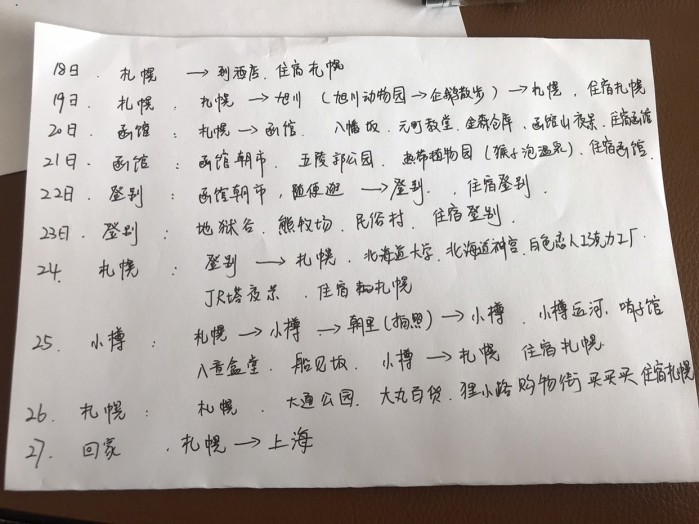 18日. 札幌 → 到酒店. 住宿札幌
19日. 札幌. 札幌 → 旭川 (旭川动物园 → 企鹅散步) → 札幌. 住宿札幌
20日. 函馆: 札幌 → 函馆. 八幡坂. 元町教堂. 金森仓库. 函馆山夜景. 住宿函馆
21日. 函馆: 函馆朝市. 五陵郭公园. 热带植物园 (猴子泡温泉). 住宿函馆.
22日. 登别: 函馆朝市, 随便逛 → 登别. 住宿登别.
23日. 登别: 地狱谷. 熊牧场. 民俗村. 住宿登别.
24. 札幌: 登别 → 札幌. 北海道大学. 北海道神宫. 白色恋人巧克力工厂.
JR塔夜景. 住宿札幌
25. 小樽: 札幌 → 小樽 → 朝里 (拍照) → 小樽. 小樽运河. 哨子馆
八音盒堂. 船见坂. 小樽 → 札幌 住宿札幌.
26. 札幌: 札幌. 大通公园. 大丸百货. 狸小路购物街 买买买 住宿札幌
27. 回家. 札幌 → 上海